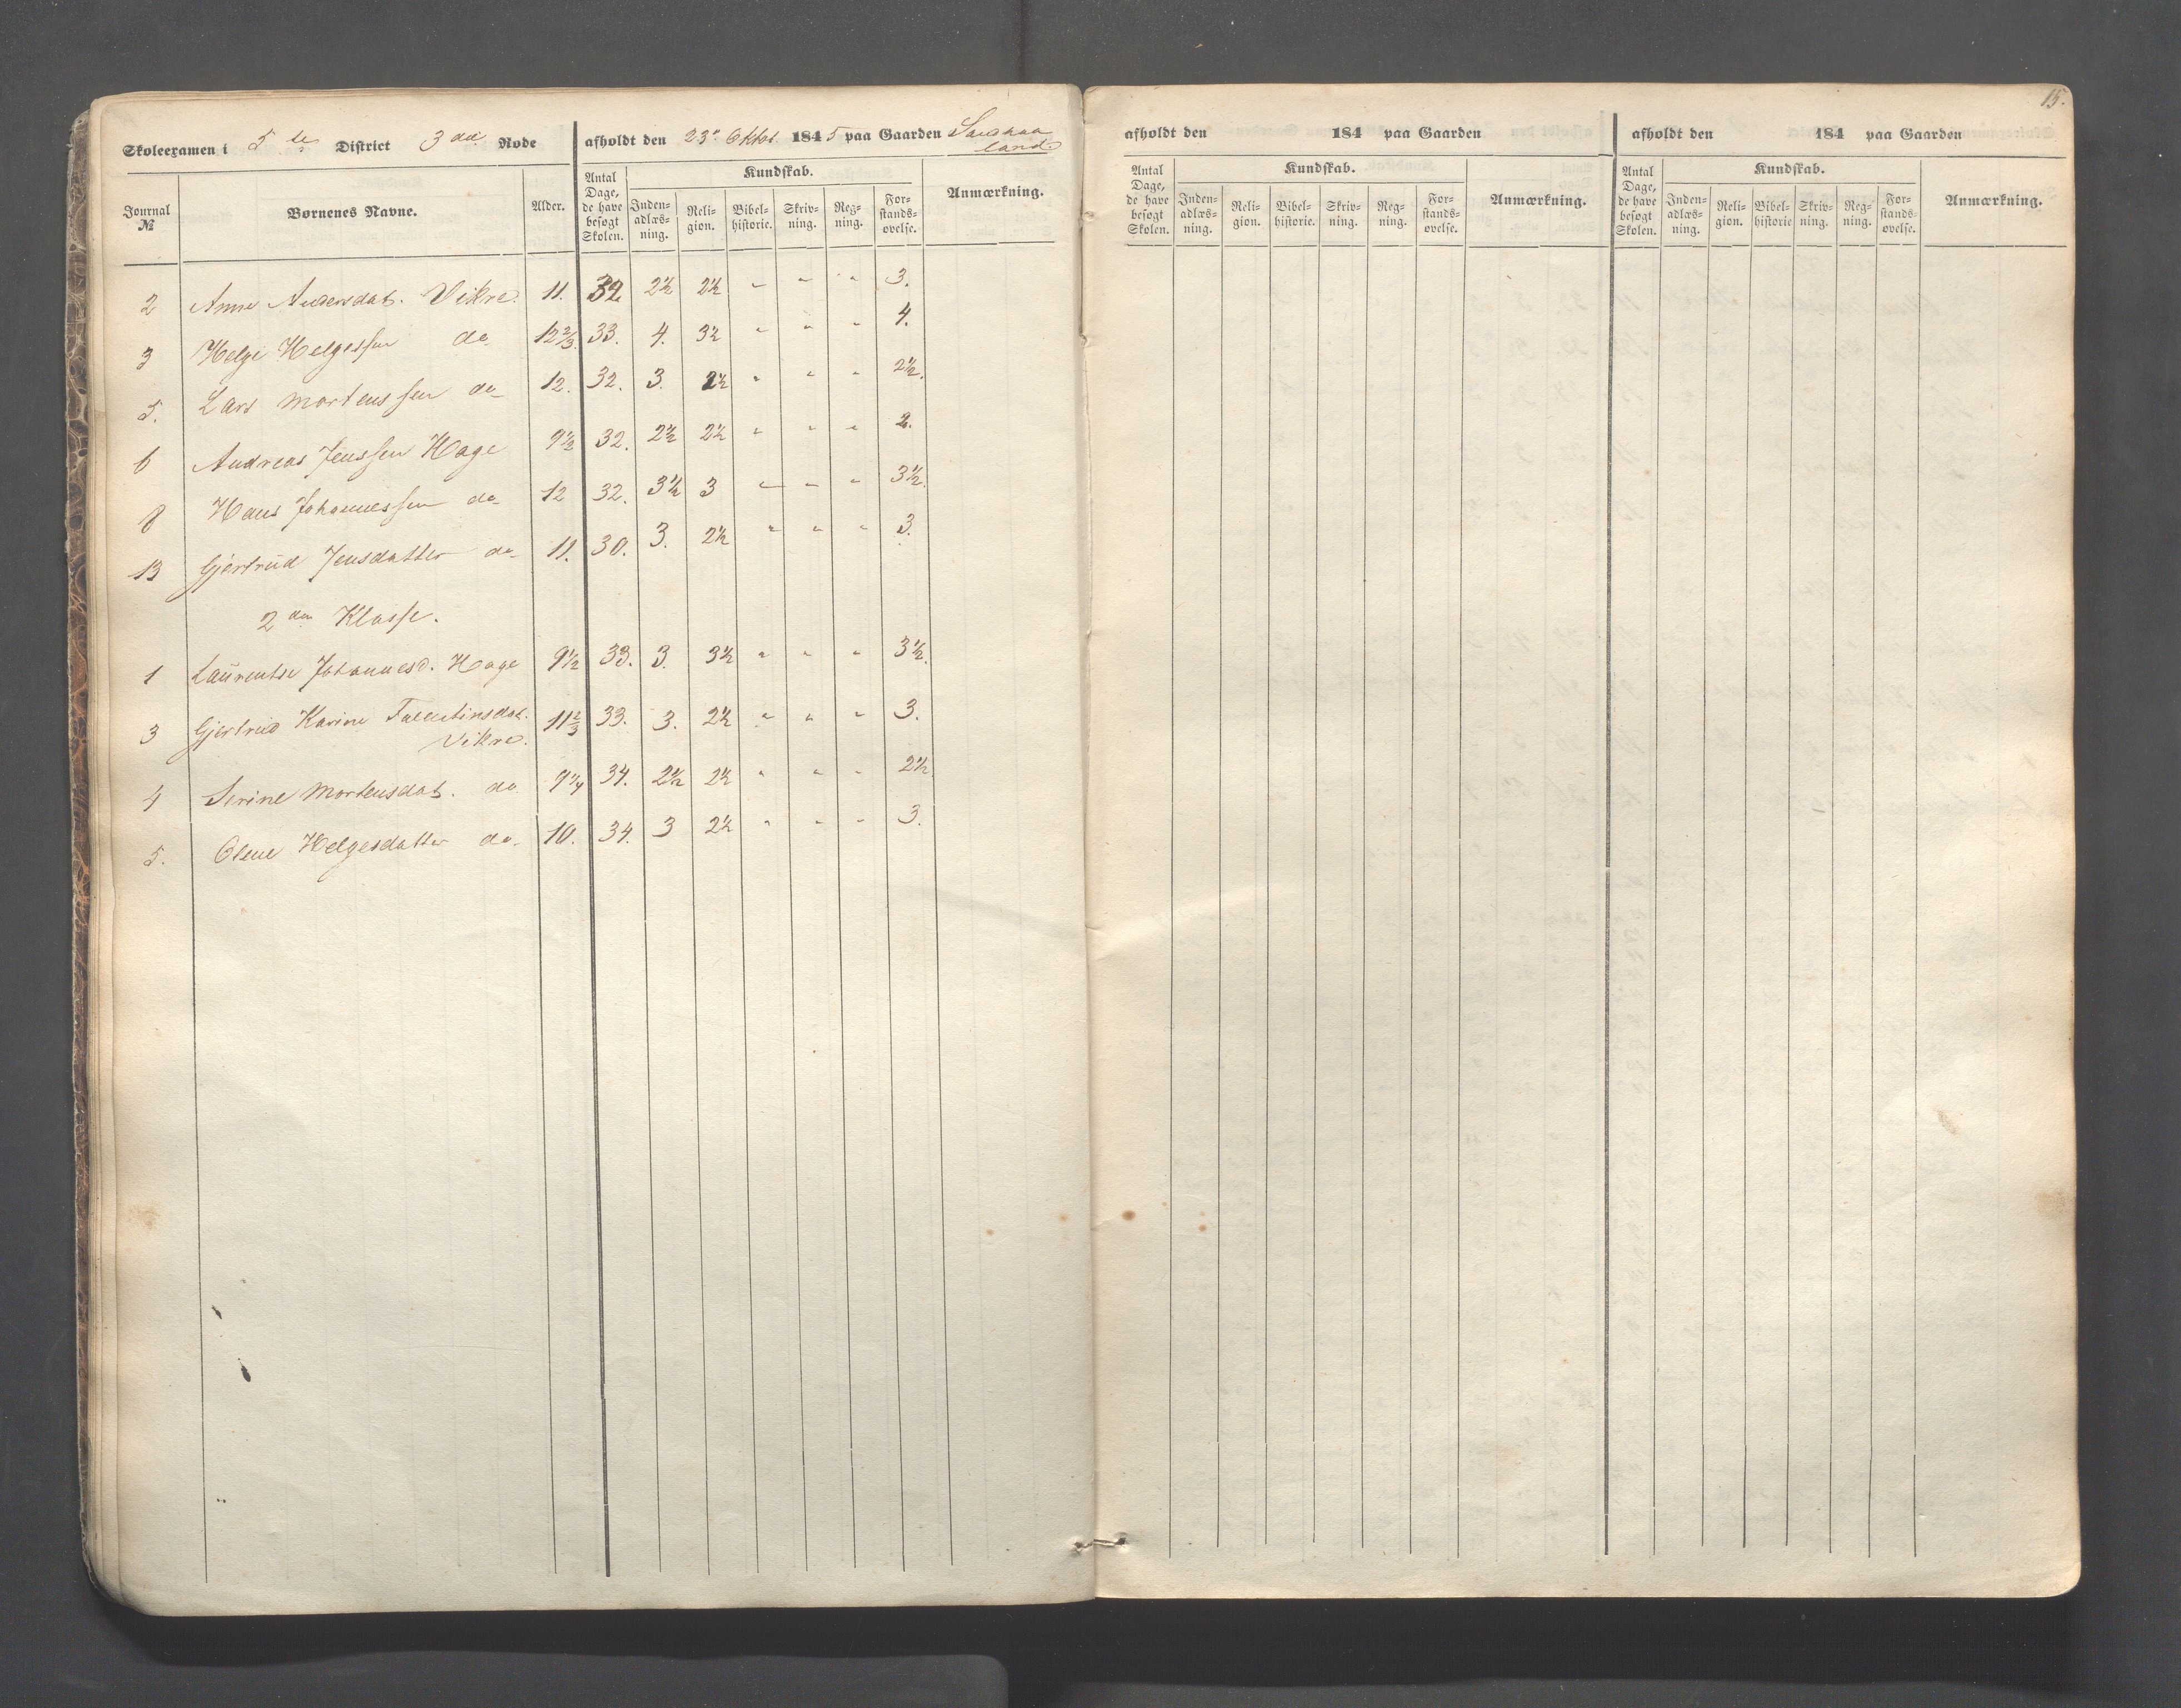 15.
Skoleexamen i 5te District 3die Rode afholdt den 23de Oktbr. 1845 paa Gaarden
land
Journal № Børnenes Navne. Alder. Antal Dage, de have besøgt Skolen. Kundskab. Anmærkning.
Inden-adlæs-ning. Reli-gion. Bibel-historie. Skriv-ning. Reg-ning. For-stands-øvelse.
2 Anne Andersdat. Vikre. 11. 32. 2½ 2½ " " " 3.
3 Helge Helgessen do 12⅔ 33. 4. 3½ " " " 4.
5. Lars Mortenssen do 12. 32. 3. 2½ " " " 2½.
6 Andreas Jenssen Hage 9½ 32. 2½ 2½ " " " 2.
8 Hans Johannessen do 12 32. 3½ 3 " " " 3½.
13 Gjertrud Jensdatter do 11. 30. 3. 2½ " " " 3.
2den Klasse.
1 Laurentse Johannesd. Hage 9½ 33. 3. 3½ " " " 3½.
3 Gjertrud Karine Valentinsdat. 11⅔ 33. 3. 2½ " " " 3.
Vikre.
4 Serine Mortensdat. do 9¼ 34. 2½ 2½ " " " 2½
5. Olene Helgesdatter do 10. 34. 3 2½ " " " 3.
afholdt den 184 paa Gaarden
Antal Dage, de have besøgt Skolen. Kundskab. Anmærkning.
Inden-adlæs-ning. Reli-gion. Bibel-historie. Skriv-ning. Reg-ning. For-stands-øvelse.
afholdt den 184 paa Gaarden
Antal Dage, de have besøgt Skolen. Kundskab. Anmærkning.
Inden-adlæs-ning. Reli-gion. Bibel-historie Skriv-ning. Reg-ning. For-stands-øvelse.